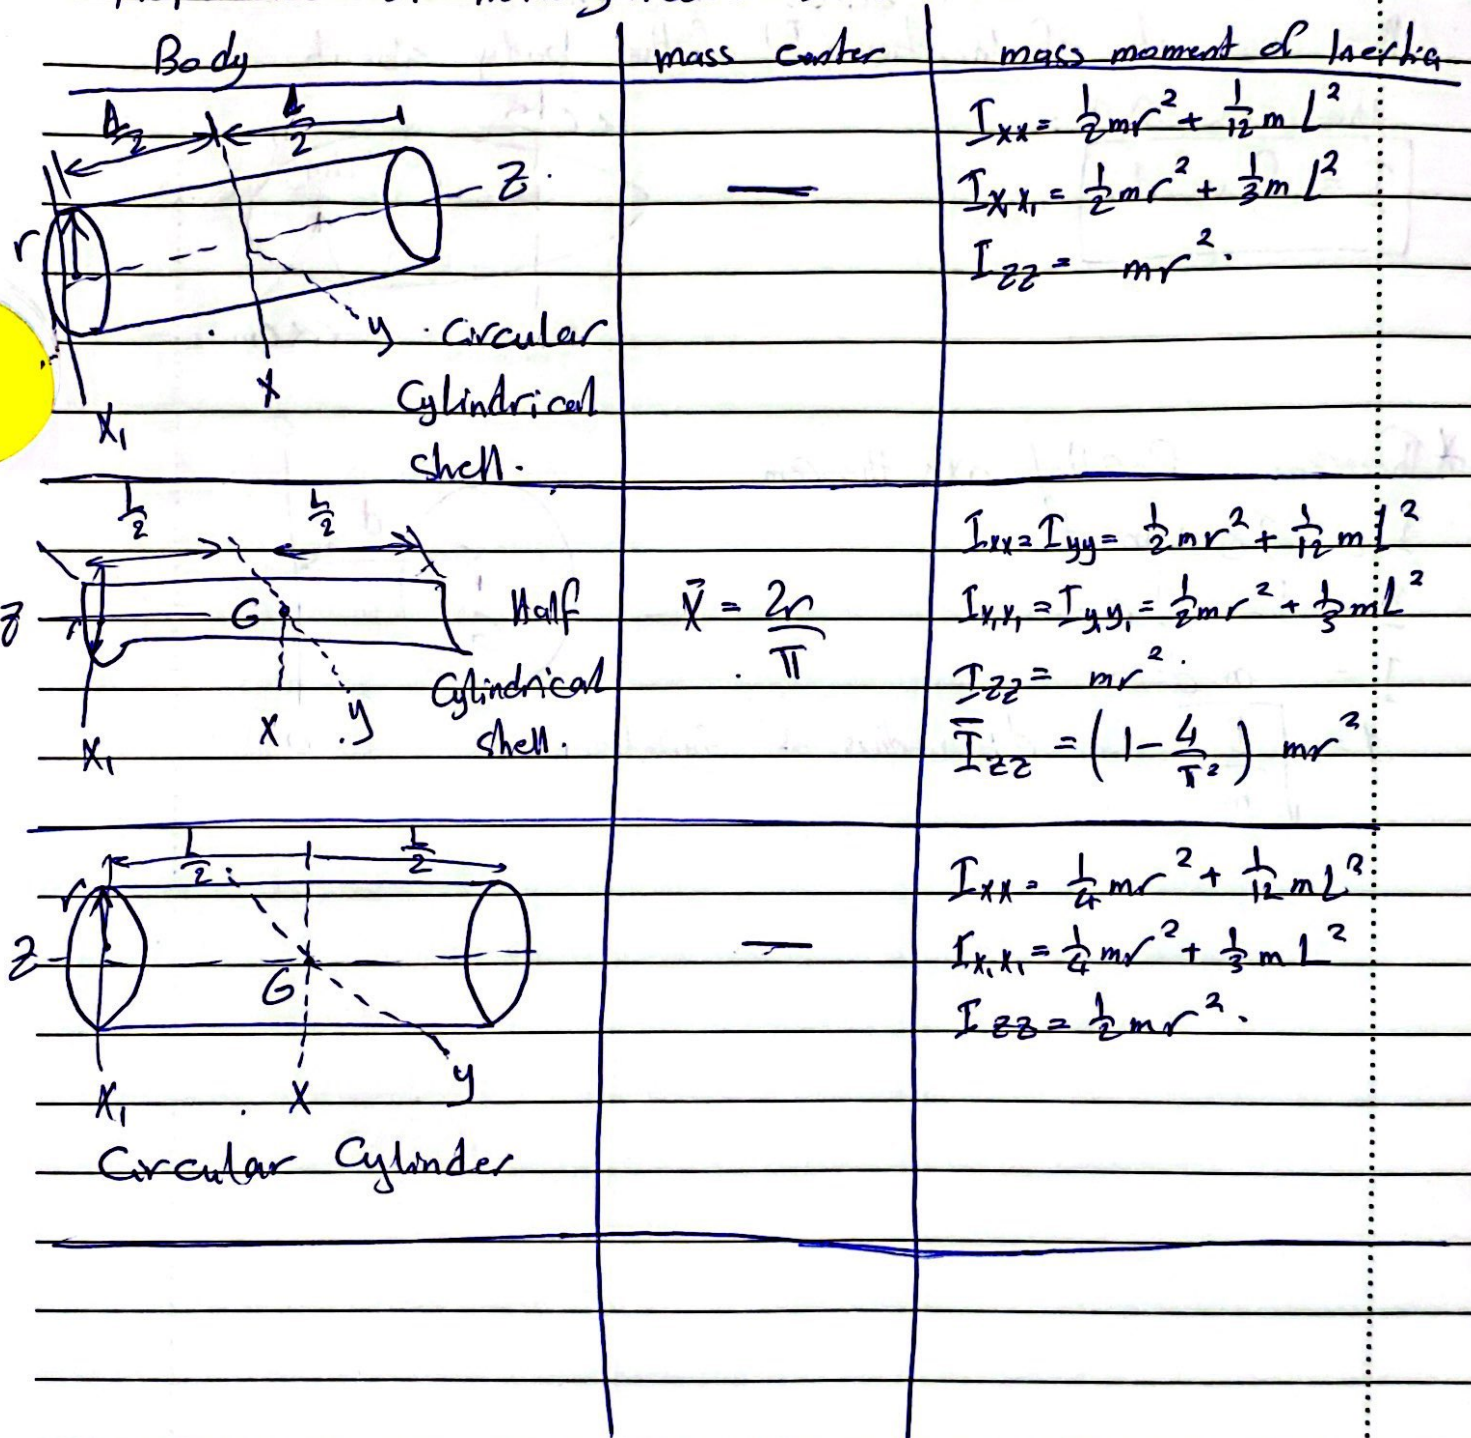 Body | mass center | mass moment of Inertia
L/2 L/2
r Z
y X X₁
Circular
Cylindrical
shell.
—
Ixx = 1/2 mr² + 1/12 m L²
Ix₁x₁ = 1/2 mr² + 1/3 m L²
Izz = mr².
L/2 L/2
Z r G
X₁ X y
Half
Cylindrical
shell.
X̄ = 2r/π
Ixx = Iyy = 1/2 mr² + 1/12 m L²
Ix₁x₁ = Iy₁y₁ = 1/2 mr² + 1/3 m L²
Izz = mr².
Īzz = (1 - 4/π²) mr²
L/2 L/2
r
Z G
X₁ X y
Circular Cylinder
—
Ixx = 1/4 mr² + 1/12 m L²
Ix₁x₁ = 1/4 mr² + 1/3 m L²
Izz = 1/2 mr².